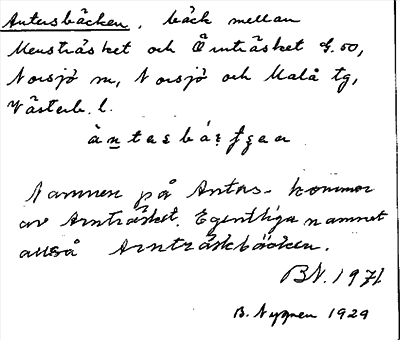 Antusbäcken, bäck mellan
Mensträsket och Örnträsket G. 50,
Norsjö sn, Norsjö och Malå tg,
Västerb. l.
Namnen på Antus- kommer
av Arnträsket. Egentliga namnet
alltså Arnträskbäcken.
BN. 1971
B. Nygren 1929